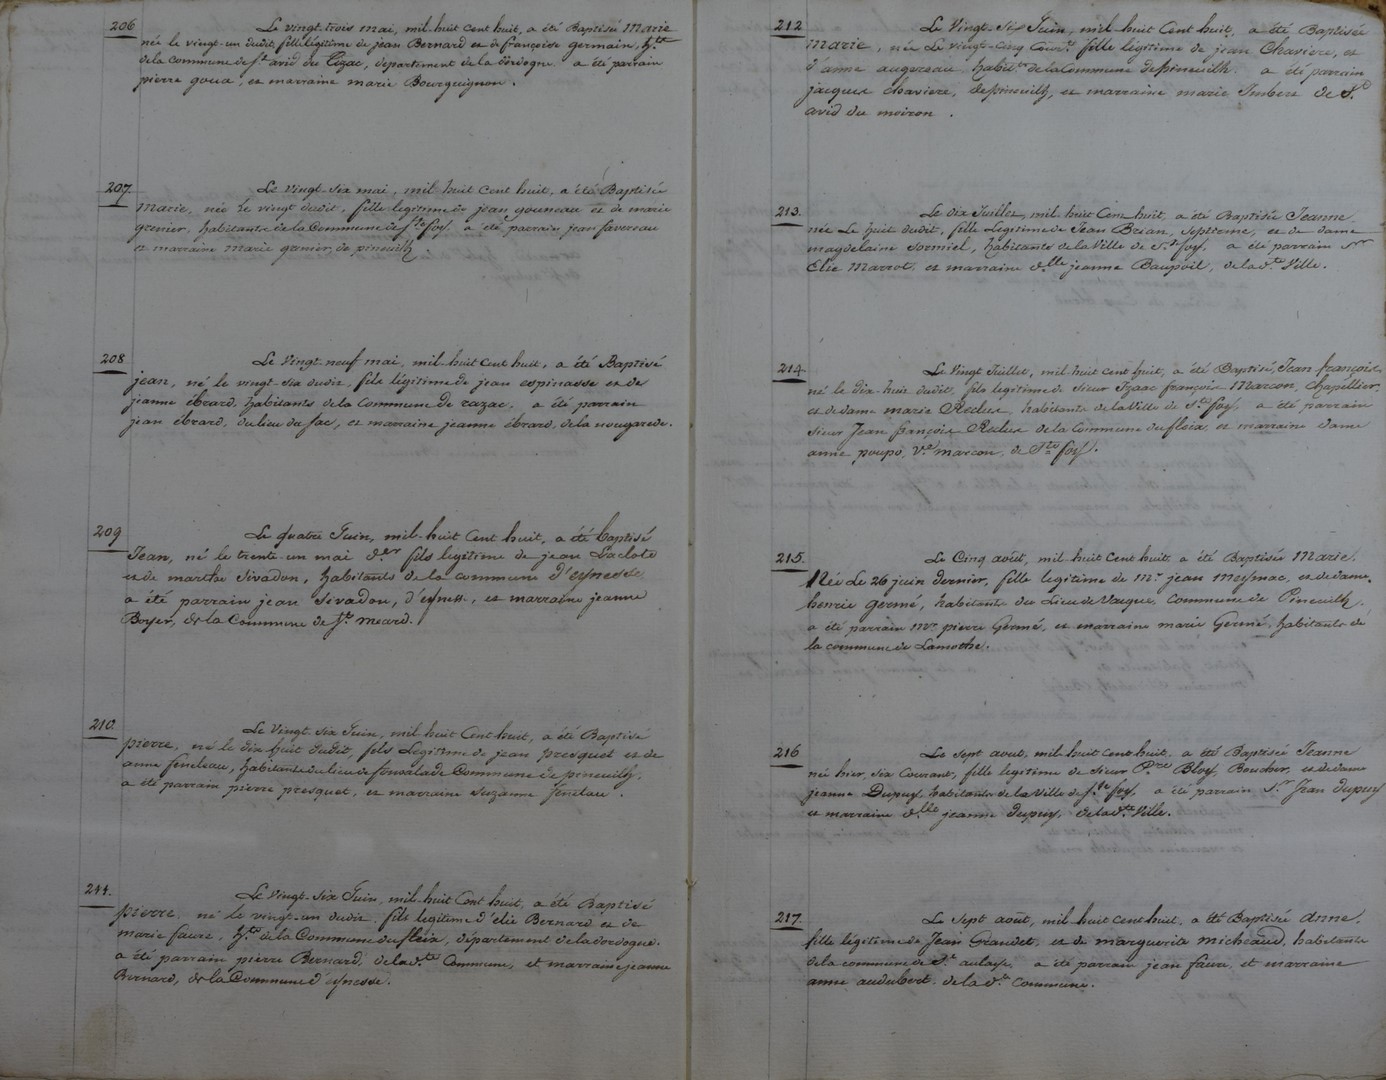 206
Le vingt-trois mai, mil-huit cent huit, a été Baptisé Marie
née le vingt-un dudit, fille légitime de jean Bernard et de françoise germain, hts
de la Commune de St. avid du tizac, département de la dordogne. a été parrain
pierre goua, et marraine marie Bourguignon.
207.
Le vingt-six mai, mil-huit cent huit, a été Baptisée
Marie, née le vingt dudit, fille légitime de jean gouneau et de marie
grenier, habitants de la Commune de Ste. foy. a été parrain jean favereau
et marraine Marie grenier, de pineuilh
208
Le Vingt-neuf mai, mil-huit cent huit, a été Baptisé
jean, né le vingt-six dudit, fils légitime de jean espinasse et de
jeanne ébrard, habitants de la Commune de razac. a été parrain
jean ébrard, du lieu du fac, et marraine jeanne ébrard, de la nougarède.
209
Le quatre Juin, mil-huit Cent huit, a été baptisé
Jean, né le trente-un mai der fils legitime de jean Laclote
et de marthe Sivadon, habitants de la commune d'eynesse
a été parrain jean Sivadon, d'eyness., et marraine jeanne
Boyer, de la Commune de St. méard.
210.
Le Vingt-six Juin, mil-huit Cent huit, a été Baptisé
pierre, né le dix huit dudit, fils Légitime de jean presquet et de
anne feneleau, habitants du lieu de fonvalade Commune de pineuilh,
a été parrain pierre presquet, et marraine Suzanne fénelau.
211.
Le Vingt-six Juin, mil-huit Cent huit, a été Baptisé
pierre, né le vingt-un dudit, fils legitime d'elie Bernard et de
marie faure, hts. de la Commune du fleix, département de la dordogne.
a été parrain pierre Bernard, de la dte Commune, et marraine jeanne
Bernard, de la Commune d'eynesse.
212
Le Vingt-Six Juin, mil-huit Cent huit, a été Baptisée
Marie, née Le vingt-cinq Court. fille légitime de jean Chaviere, et
d'anne augereau habitts. de la Commune de pineuilh. a été parrain
jacques chaviere, de pineuilh, et marraine marie Imbert de St.
avid du moiron.
213.
Le dix Juillet, mil-huit Cent huit, a été Baptisée Jeanne
née Le huit dudit, fille Légitime de Jean Brian, Septieme, et de dame
magdelaine sormiel, habitants de la Ville de Ste foy. a été parrain Sr
Elie Marrot, et marraine dlle jeanne Baupoil, de la dte Ville.
214
Le Vingt Juillet, mil-huit Cent huit, a été Baptisé, Jean françois,
né le dix-huit dudit, fils legitime de sieur Izaac françois Marcon, Chapellier,
et de dame marie Reclus, habitants de la Ville de Ste foy, a été parrain
sieur Jean françois Reclus de la commune du fleix, et marraine dame
anne poupo, Ve. marcon, de Ste foy.
215.
Le Cinq août, mil-huit Cent huit, a été Baptisée Marie,
Née Le 26 juin dernier, fille legitime de Mr. jean meynac, et de dame
henrie Germé, habitants du Lieu de Vacque, Commune de Pineuilh.
a été parrain Mr. pierre Germé, et marraine marie Germé, habitants de
la commune de Lamothe.
216
Le Sept aout, mil-huit Cent huit, a été Baptisée Jeanne
née hier, six Courant, fille legitime de sieur Prre Bloy, Boucher, et de dame
jeanne Dupuy, habitants de la Ville de Ste foy, a été parrain Sr. Jean dupuy
et marraine dlle jeanne dupuy, de la dte Ville.
217.
Le Sept août, mil-huit Cent huit, a été Baptisée anne,
fille légitime de Jean Grandet, et de marguerite micheaud, habitants
de la commune de St. aulaye. a été parrain jean faure, et marraine
anne audubert. de la dte commune.